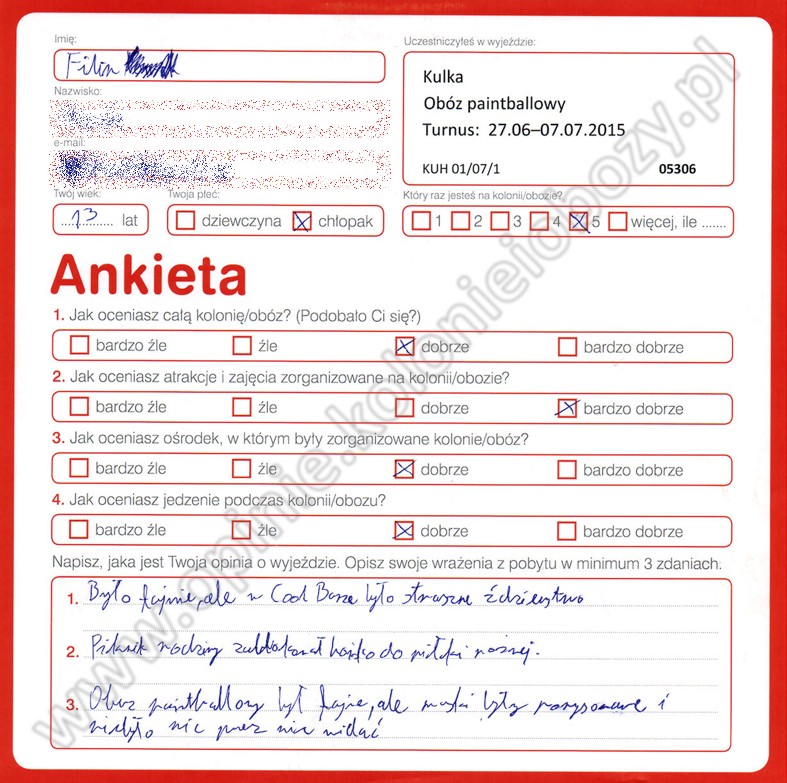 Imię:
Filip
Uczestniczyłeś w wyjeździe:
Kulka
Obóz paintballowy
Turnus: 27.06–07.07.2015
KUH 01/07/1 05306
Nazwisko:
e-mail:
Twój wiek:
13 lat
Twoja płeć:
dziewczyna chłopak
Który raz jesteś na kolonii/obozie?
1 2 3 4 5 więcej, ile .......
Ankieta
1. Jak oceniasz całą kolonię/obóz? (Podobało Ci się?)
bardzo źle źle dobrze bardzo dobrze
2. Jak oceniasz atrakcje i zajęcia zorganizowane na kolonii/obozie?
bardzo źle źle dobrze bardzo dobrze
3. Jak oceniasz ośrodek, w którym były zorganizowane kolonie/obóz?
bardzo źle źle dobrze bardzo dobrze
4. Jak oceniasz jedzenie podczas kolonii/obozu?
bardzo źle źle dobrze bardzo dobrze
Napisz, jaka jest Twoja opinia o wyjeździe. Opisz swoje wrażenia z pobytu w minimum 3 zdaniach.
1. Było fajnie, ale w Cool Baza było straszne ździerstwo
2. Piknik rodziny zablokował boisko do piłki nożnej.
3. Obóz paintballowy był fajny, ale maski były porysowane i
niebyło nic przez nie widać
www.opinie.kolonieiobozy.pl